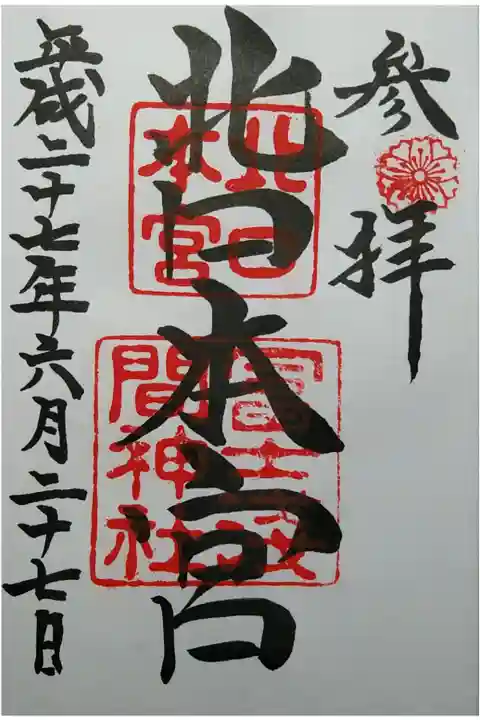 参拝
北口本宮
北口本宮
冨士浅間神社
平成二十七年六月二十七日